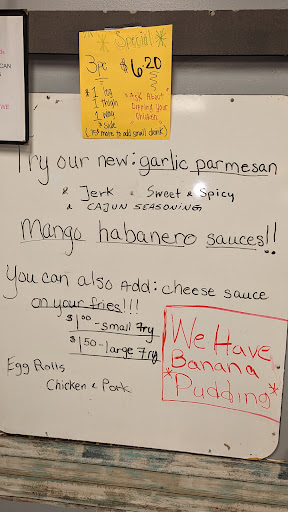 * Special *
3pc $6.20
* 1 leg
1 thigh
1 wing
* side
* Ask About
Dipping Your
Chicken
more to add small drink)
CAN
WE
Try our new: garlic parmesan
& Jerk & Sweet & Spicy
& CAJUN SEASONING
Mango habanero sauces!!
You can also Add: cheese sauce
on your fries!!!
$1.00 - small fry
$1.50 - large fry
Egg Rolls
Chicken & Pork
We Have
Banana
*Pudding*